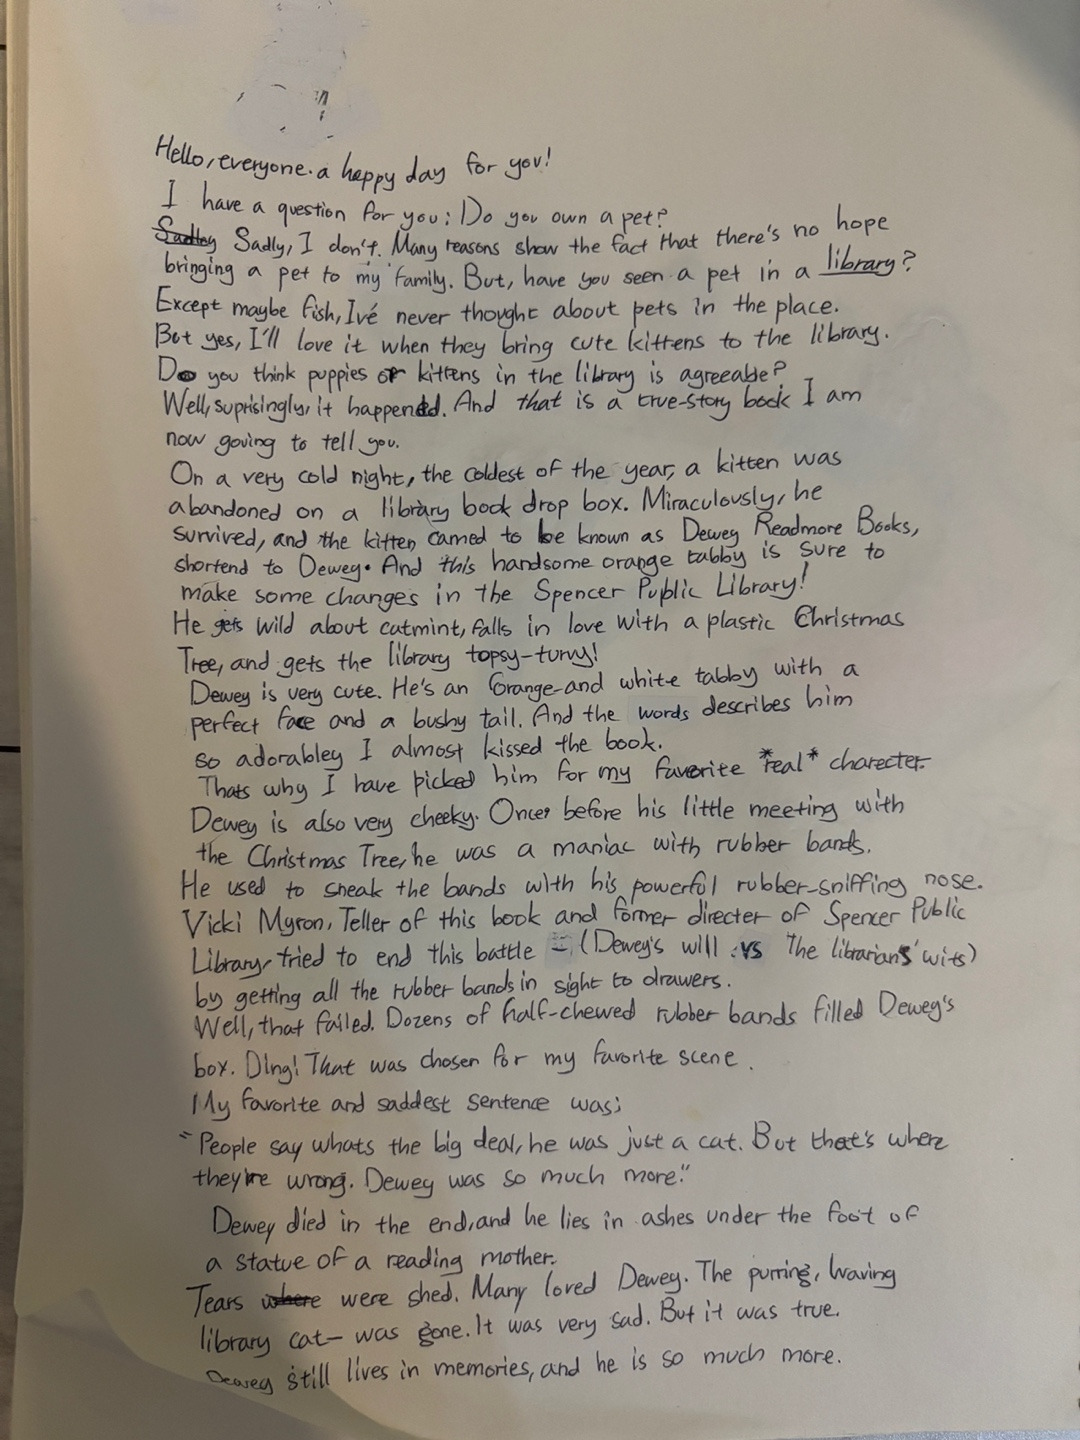 Hello, everyone. a happy day for you!
I have a question for you: Do you own a pet?
Sadly, I don't. Many reasons show the fact that there's no hope
bringing a pet to my family. But, have you seen a pet in a library?
Except maybe fish, I've never thought about pets in the place.
But yes, I'll love it when they bring cute kittens to the library.
Do you think puppies or kittens in the library is agreeable?
Well, suprisingly, it happened. And that is a true-story book I am
now goving to tell you.
On a very cold night, the coldest of the year, a kitten was
abandoned on a library book drop box. Miraculously, he
survived, and the kitten camed to be known as Dewey Readmore Books,
shortend to Dewey. And this handsome orange tabby is sure to
make some changes in the Spencer Puplic Library!
He gets wild about catmint, falls in love with a plastic Christmas
Tree, and gets the library topsy-turvy!
Dewey is very cute. He's an orange-and white tabby with a
perfect face and a bushy tail. And the words describes him
so adorabley I almost kissed the book.
Thats why I have picked him for my favorite *real* charecter.
Dewey is also very cheeky. Once, before his little meeting with
the Christmas Tree, he was a maniac with rubber bands.
He used to sneak the bands with his powerful rubber-sniffing nose.
Vicki Myron, Teller of this book and former directer of Spencer Public
Library, tried to end this battle (Dewey's will vs The librarians' wits)
by getting all the rubber bands in sight to drawers.
Well, that failed. Dozens of half-chewed rubber bands filled Dewey's
box. Ding! That was chosen for my favorite scene.
My favorite and saddest sentence was:
"People say whats the big deal, he was just a cat. But that's where
they're wrong. Dewey was so much more."
Dewey died in the end, and he lies in ashes under the foot of
a statue of a reading mother.
Tears where were shed. Many loved Dewey. The purring, waving
library cat— was gone. It was very sad. But it was true.
Dewey still lives in memories, and he is so much more.